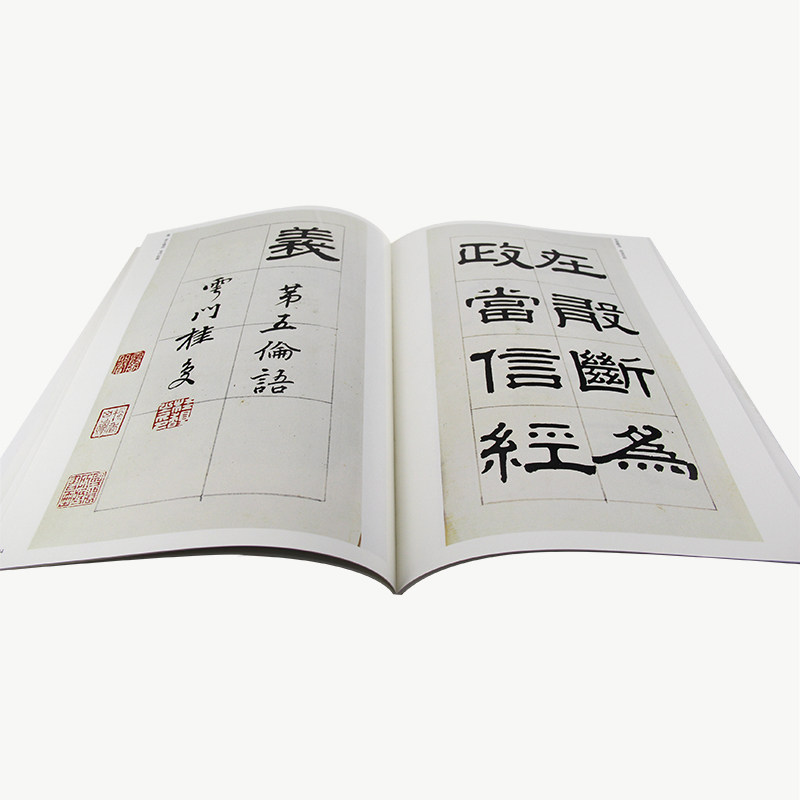 在敢斷為
政當信經
義
第五倫語
雩門桂馥